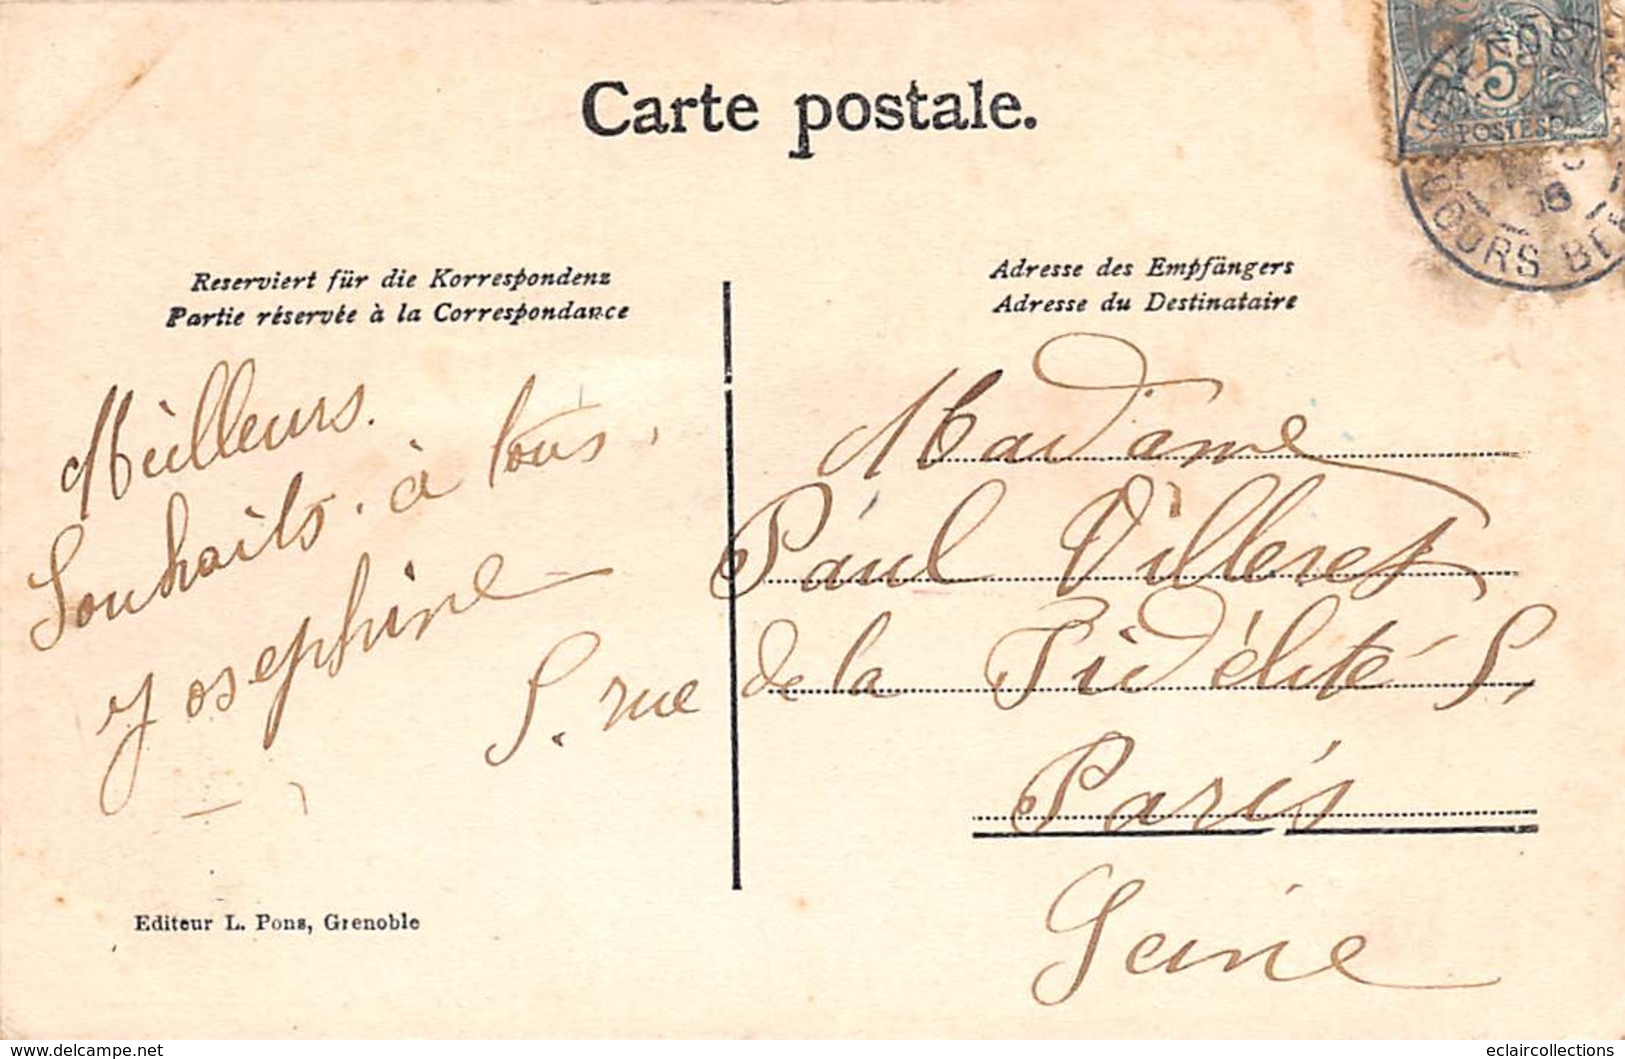 Carte postale.
5
POSTES
06
OURS BE
Reserviert für die Korrespondenz
Partie réservée à la Correspondance
Adresse des Empfängers
Adresse du Destinataire
Meilleurs.
Souhaits. à tous.
Josephine
Madame
Paul Villeret
5. rue de la Fidélité 5,
Paris
Seine
Editeur L. Pons, Grenoble
www.delcampe.net
eclaircollections